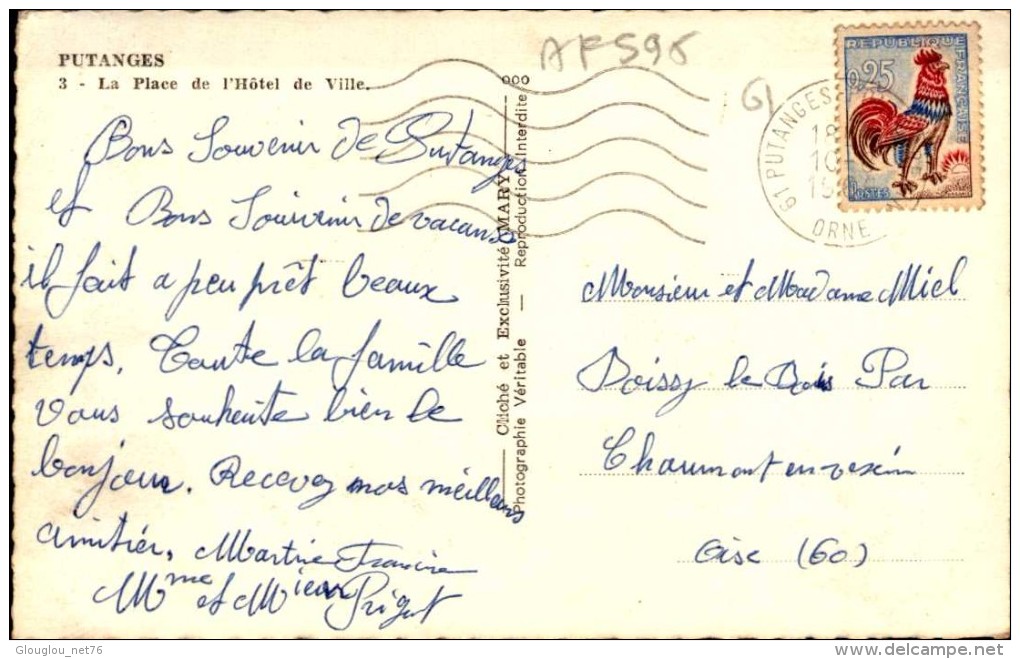 PUTANGES
3 - La Place de l'Hôtel de Ville.
Bons Souvenir de Putanges
et Bons Souvenir de vacances
il fait a peu prêt beaux
temps. Toute la famille
vous souhaite bien le
bonjour. Recevez nos meilleurs
amitiés. Martine Francine
Mme et Mieur Prigut
ooo
Cliché et Exclusivité MARY
Photographie Véritable — Reproduction Interdite
AF596
61
61 PUTANGES
18
10
15
ORNE
RÉPUBLIQUE FRANÇAISE
0,25
POSTES
Monsieur et Madame Miel
Boissy le Bois Par
Chaumont en vexin
Oise (60)
Glouglou_net76
delcampe.net